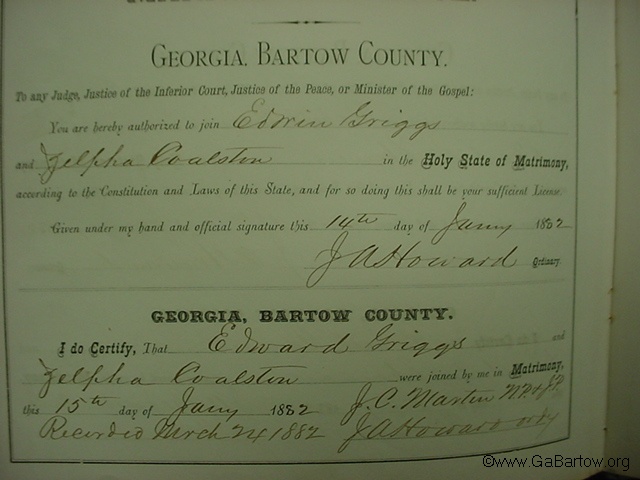 GEORGIA. BARTOW COUNTY.
To any Judge, Justice of the Inferior Court, Justice of the Peace, or Minister of the Gospel:
You are hereby authorized to join Edwin Griggs
and Zelpha Coalston in the Holy State of Matrimony,
according to the Constitution and Laws of this State, and for so doing this shall be your sufficient License.
Given under my hand and official signature this 14th day of Jany 1882
J A Howard Ordinary.
GEORGIA, BARTOW COUNTY.
I do Certify, That Edward Griggs and
Zelpha Coalston were joined by me in Matrimony,
this 15th day of Jany 1882 J.C. Martin NP & JP
Recorded Mrch 24 1882 J A Howard ordy
©www.GaBartow.org